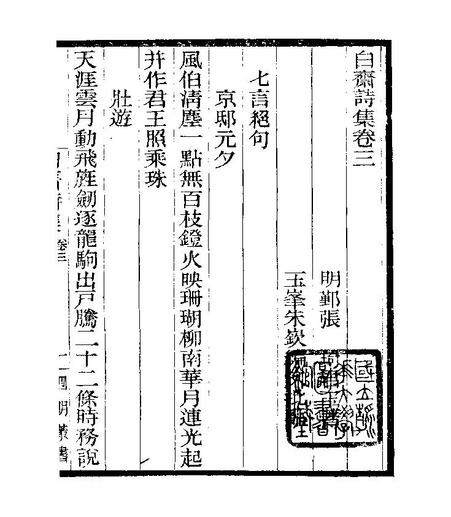 白齋詩集卷三
明鄞張
玉峯朱欽
七言絕句
京邸元夕
風伯清塵一點無百枝鐙火映珊瑚柳南華月連光起
并作君王照乘珠
壯遊
天涯雲月動飛旌劒逐龍駒出戸騰二十二條時務說
卷三
四明叢書